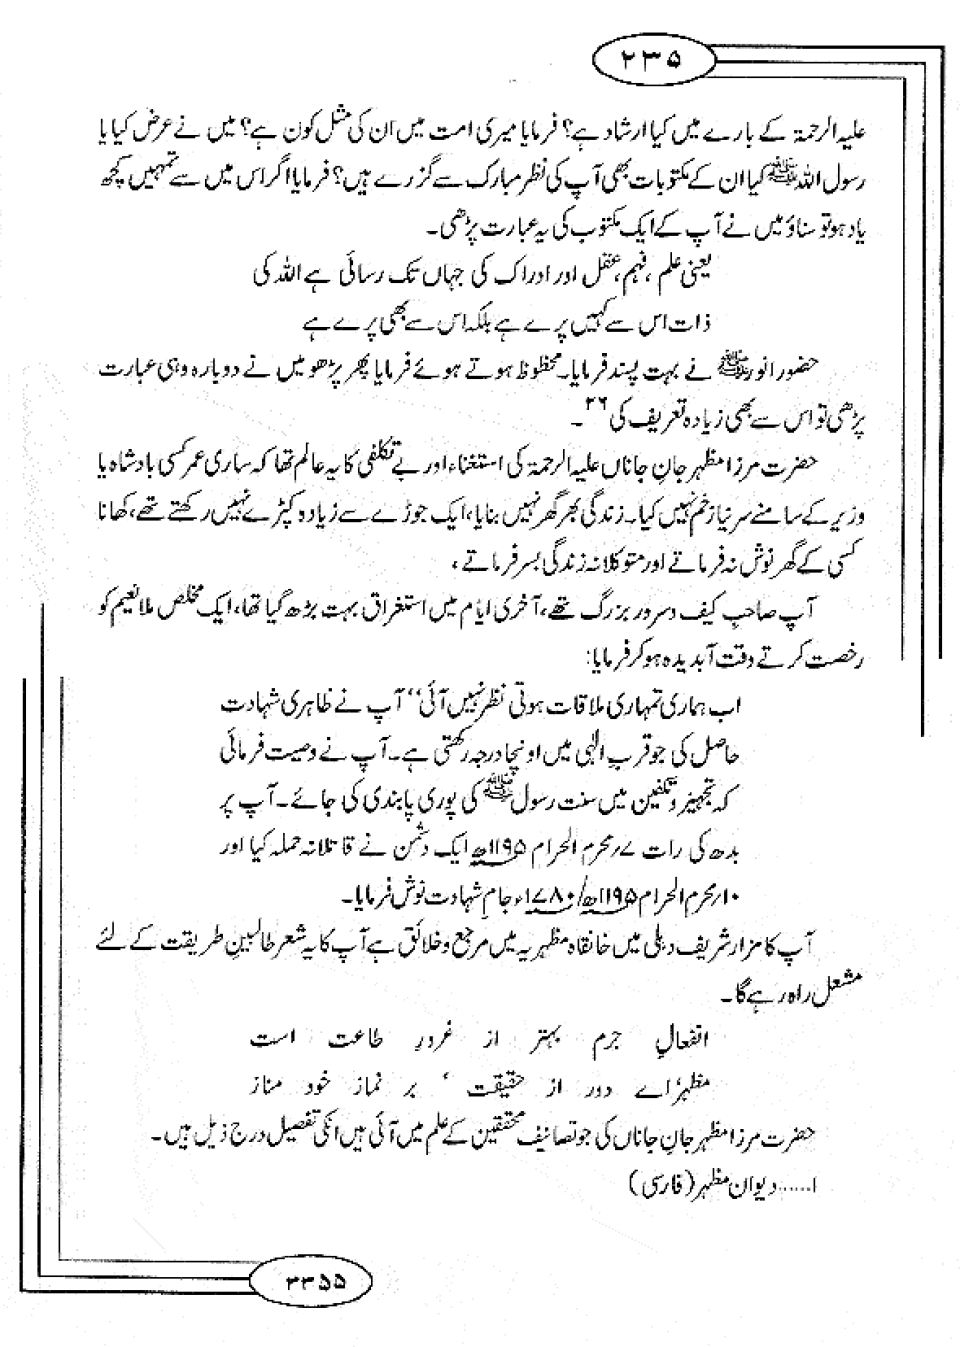 ۲۳۵
علیہ الرحمۃ کے بارے میں کیا ارشاد ہے؟ فرمایا میری امت میں ان کی مثل کون ہے؟ میں نے عرض کیا یا
رسول اللہ ﷺ کیا ان کے مکتوبات بھی آپ کی نظر مبارک سے گزرے ہیں؟ فرمایا اگر اس میں سے تمہیں کچھ
یاد ہو تو سناؤ میں نے آپ کے ایک مکتوب کی یہ عبارت پڑھی۔
یعنی علم، فہم، عقل اور ادراک کی جہاں تک رسائی ہے اللہ کی
ذات اس سے کہیں پرے ہے بلکہ اس سے بھی پرے ہے
حضور انور ﷺ نے بہت پسند فرمایا۔ محظوظ ہوتے ہوئے فرمایا پھر پڑھو میں نے دوبارہ وہی عبارت
پڑھی تو اس سے بھی زیادہ تعریف کی ۳۶۔
حضرت مرزا مظہر جانِ جاناں علیہ الرحمۃ کی استغناء اور بے تکلفی کا یہ عالم تھا کہ ساری عمر کسی بادشاہ یا
وزیر کے سامنے سر نیاز خم نہیں کیا۔ زندگی بھر گھر نہیں بنایا، ایک جوڑے سے زیادہ کپڑے نہیں رکھتے تھے، کھانا
کسی کے گھر نوش نہ فرماتے اور متوکلانہ زندگی بسر فرماتے،
آپ صاحبِ کیف و سرور بزرگ تھے، آخری ایام میں استغراق بہت بڑھ گیا تھا، ایک مخلص ملا نعیم کو
رخصت کرتے وقت آبدیدہ ہو کر فرمایا:
اب ہماری تمہاری ملاقات ہوتی نظر نہیں آئی‘‘ آپ نے ظاہری شہادت
حاصل کی جو قربِ الٰہی میں اونچا درجہ رکھتی ہے۔ آپ نے وصیت فرمائی
کہ تجہیز و تکفین میں سنت رسول ﷺ کی پوری پابندی کی جائے۔ آپ پر
بدھ کی رات ۷؍محرم الحرام ۱۱۹۵ھ ایک دشمن نے قاتلانہ حملہ کیا اور
۱۰؍محرم الحرام ۱۱۹۵ھ/۱۷۸۰ء جامِ شہادت نوش فرمایا۔
آپ کا مزار شریف دہلی میں خانقاہ مظہریہ میں مرجع و خلائق ہے آپ کا یہ شعر طالبینِ طریقت کے لئے
مشعل راہ رہے گا۔
انفعالِ جرم بہتر از غرورِ طاعت است
مظہرؔ اے دور از حقیقت ، بر نماز خود مناز
حضرت مرزا مظہر جانِ جاناں کی جو تصانیف محققین کے علم میں آئی ہیں انکی تفصیل درج ذیل ہیں۔
۱……دیوان مظہر (فارسی)
۳۳۵۵